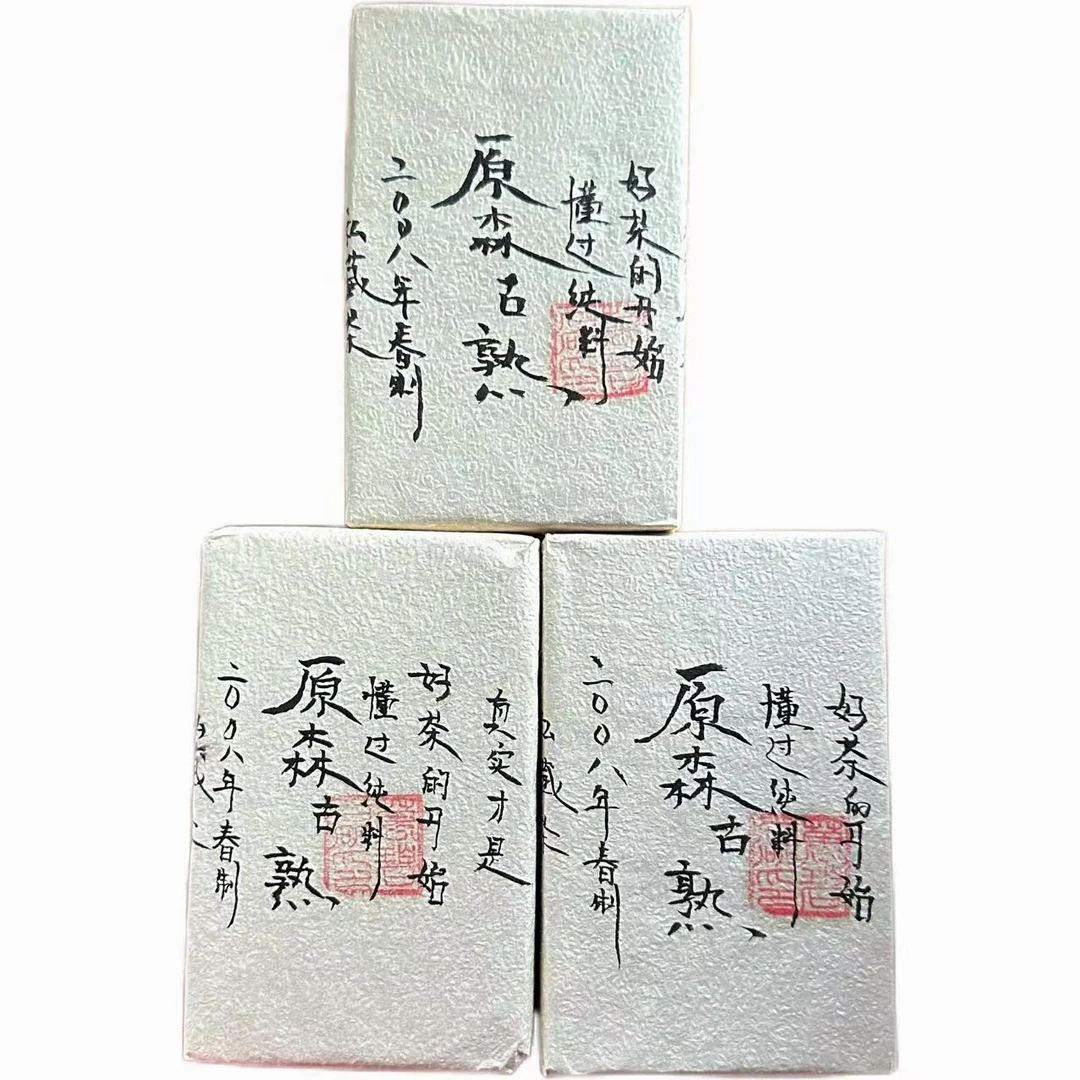 好茶的开始
懂过纯料
原森古熟
二〇〇八年春制
私藏茶
真实才是
好茶的开始
懂过纯料
原森古熟
二〇〇八年春制
好茶的开始
懂过纯料
原森古熟
二〇〇八年春制